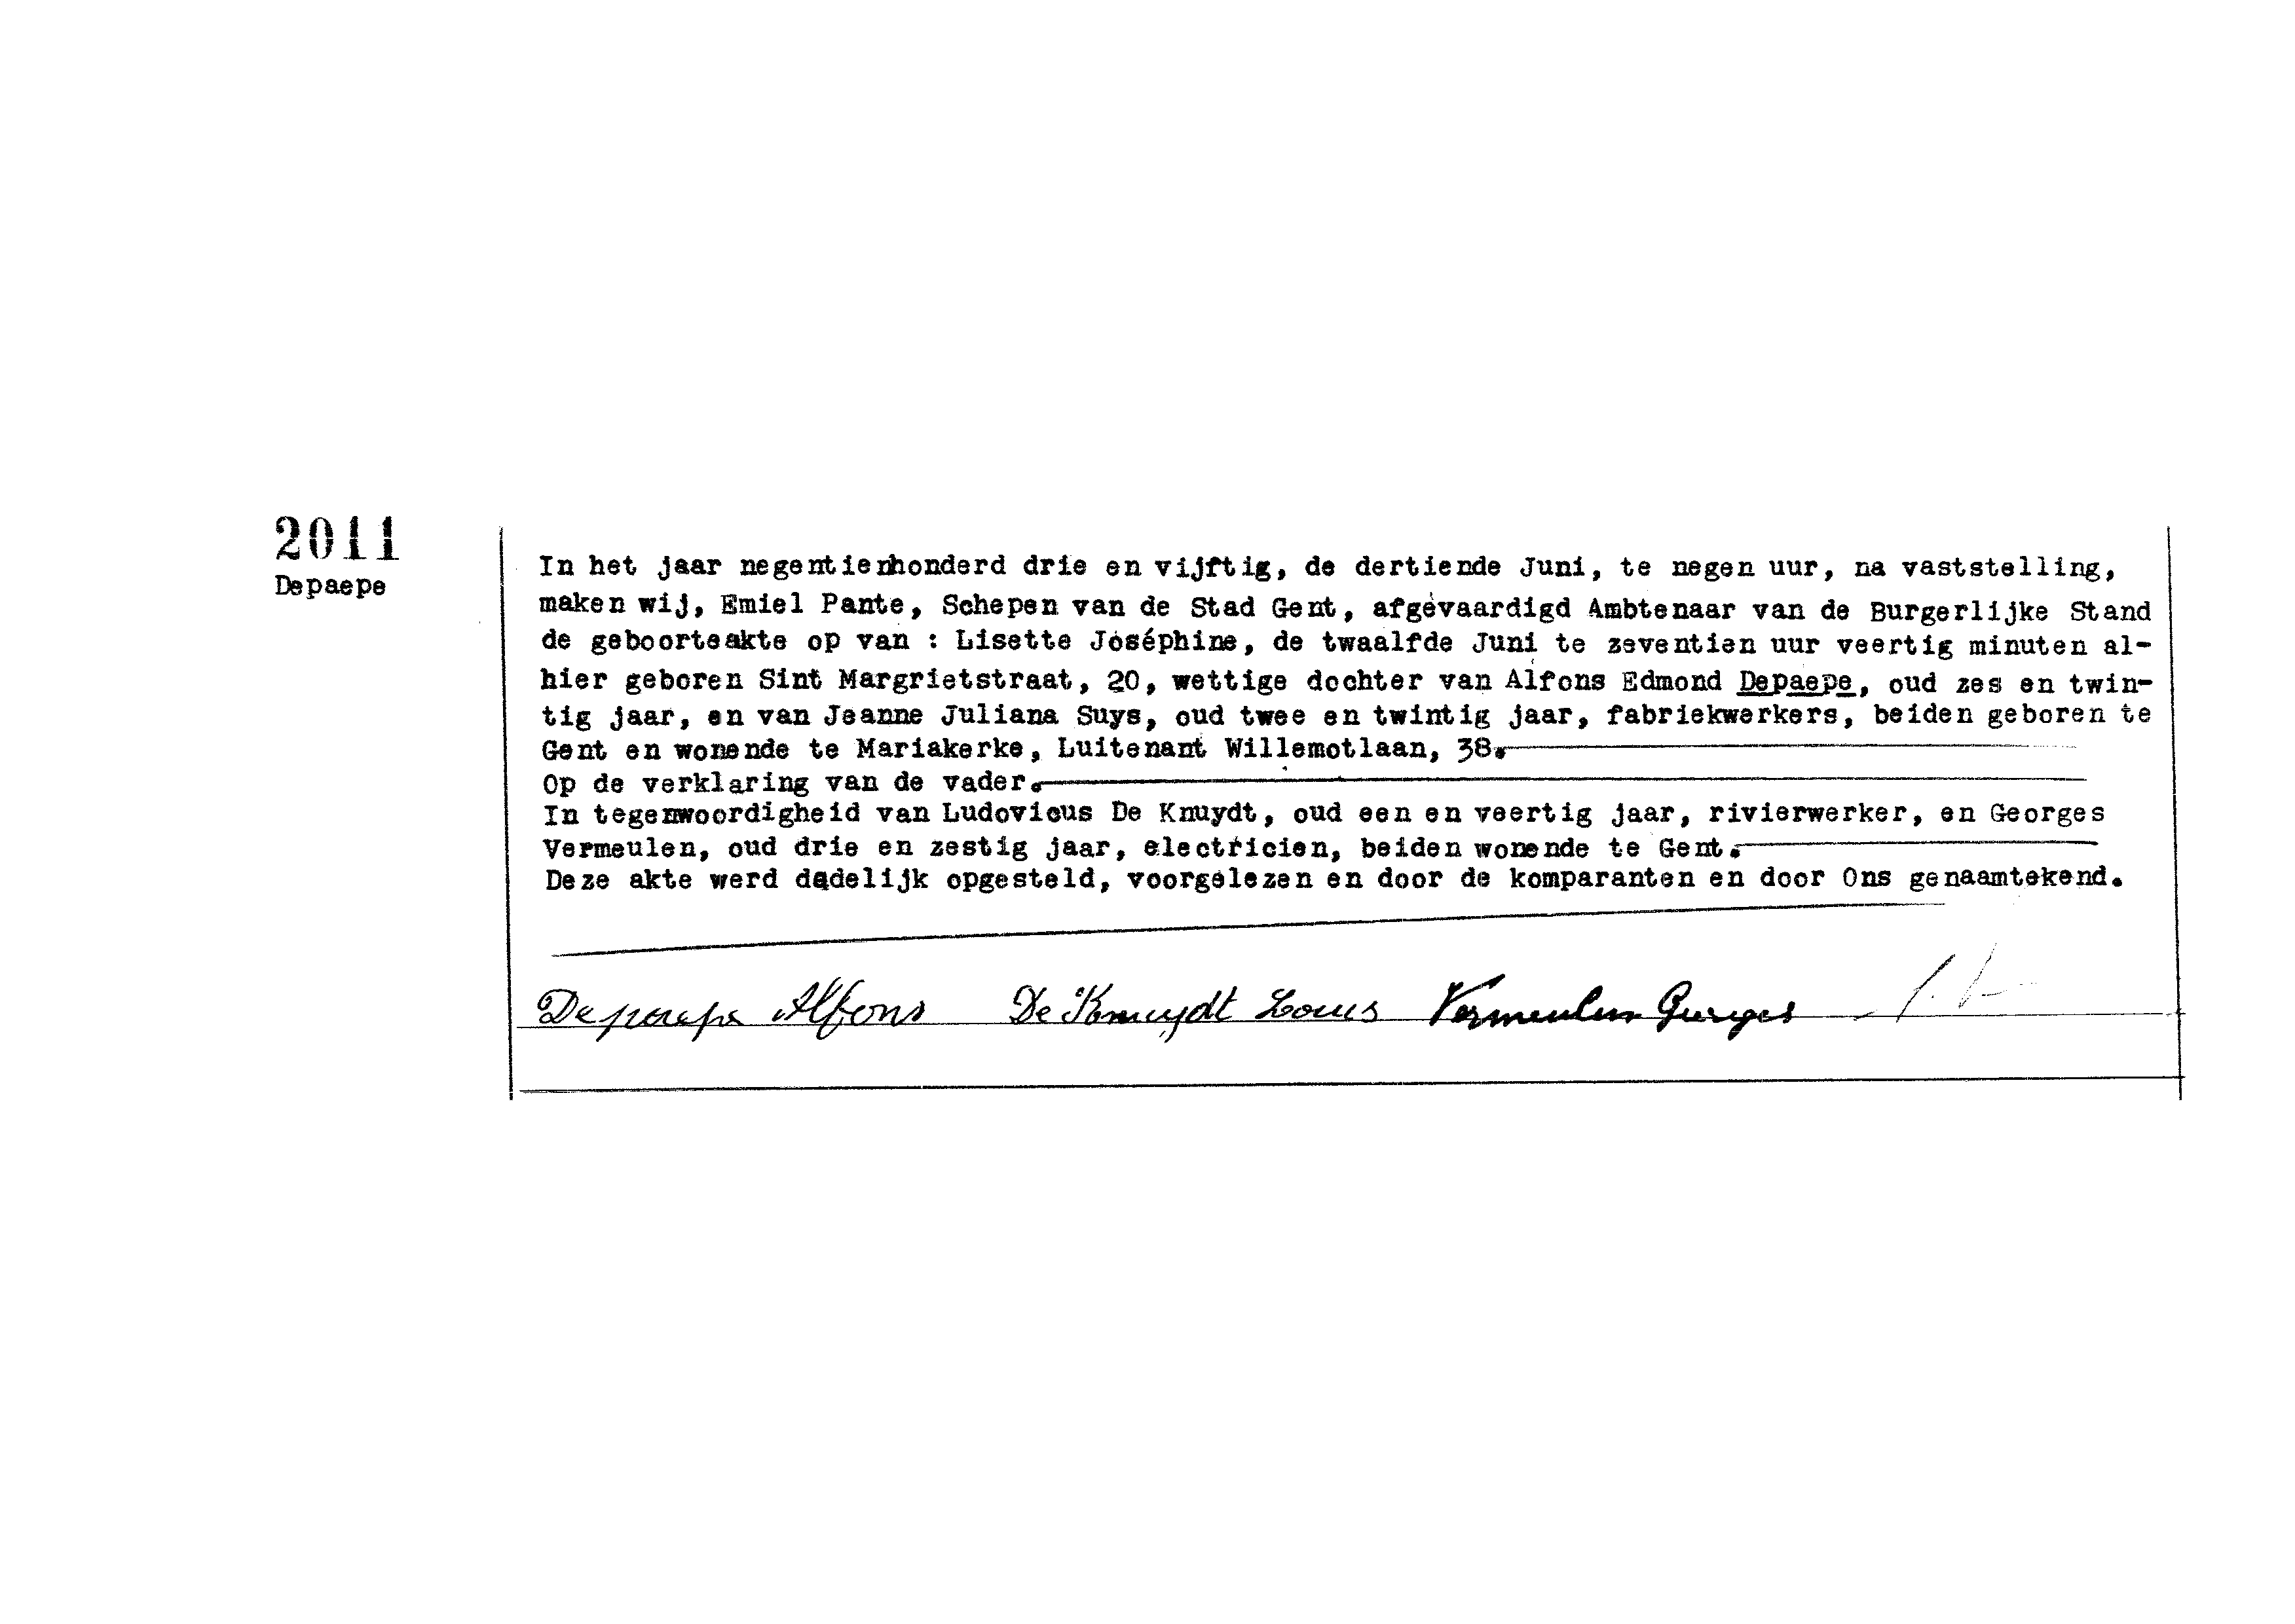 2011
Depaepe
In het jaar negentienhonderd drie en vijftig, de dertiende Juni, te negen uur, na vaststelling,
maken wij, Emiel Pante, Schepen van de Stad Gent, afgevaardigd Ambtenaar van de Burgerlijke Stand
de geboorteakte op van : Lisette Joséphine, de twaalfde Juni te zeventien uur veertig minuten al-
hier geboren Sint Margrietstraat, 20, wettige dochter van Alfons Edmond Depaepe, oud zes en twin-
tig jaar, en van Jeanne Juliana Suys, oud twee en twintig jaar, fabriekwerkers, beiden geboren te
Gent en wonende te Mariakerke, Luitenant Willemotlaan, 38.
Op de verklaring van de vader.
In tegenwoordigheid van Ludovicus De Knuydt, oud een en veertig jaar, rivierwerker, en Georges
Vermeulen, oud drie en zestig jaar, electricien, beiden wonende te Gent.
Deze akte werd dadelijk opgesteld, voorgelezen en door de komparanten en door Ons genaamtekend.
Depaepe Alfons De Knuydt Louis Vermeulen Georges